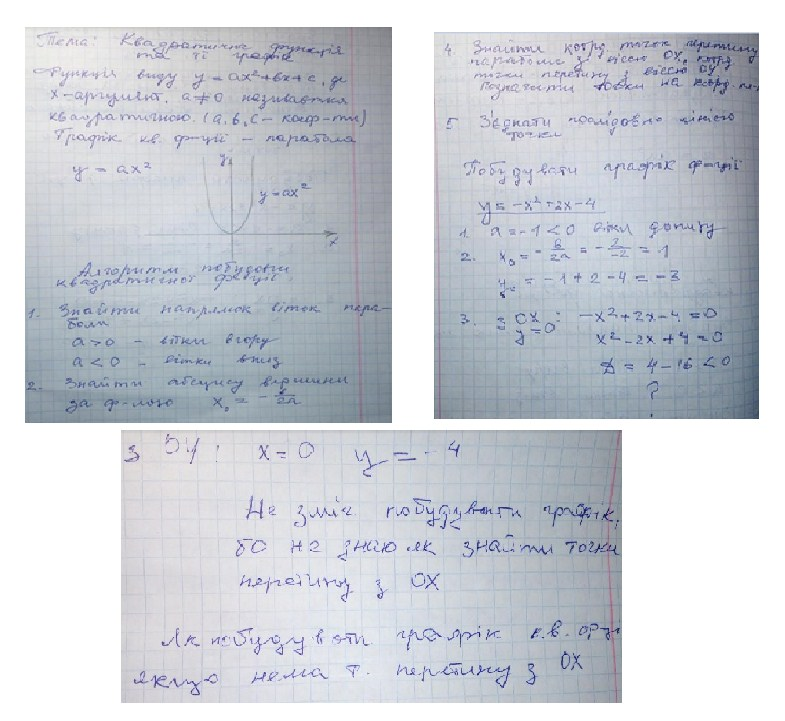 Тема: Квадратична функція
та її графік
Функція виду y = ax²+bx+c, де
x-аргумент, a≠0 називається
квадратичною. (a, b, c - коеф-ти)
Графік кв. ф-ції - парабола
y = ax²
y
y=ax²
x
Алгоритм побудови
квадратичної ф-ції.
1. Знайти напрямок віток пара-
боли
a>0 - вітки вгору
a<0 - вітки вниз
2. Знайти абсцису вершини
за ф-лою x₀ = -b/2a
4. Знайти коорд. точок перетину
параболи з віссю OX,
точки перетину з віссю OY
Позначити точки на коорд.
5 З'єднати послідовно лінією
точки
Побудувати графік ф-ції
y = -x²+2x-4
1. a = -1 < 0 вітки донизу
2. x₀ = -b/2a = -2/-2 = 1
y₀ = -1+2-4 = -3
3. з OX: -x²+2x-4=0
y=0 x²-2x+4=0
D = 4-16 <0
?
з OY: x=0 y=-4
Не зміг побудувати графік,
бо не знаю як знайти точки
перетину з OX
Як побудувати графік кв.
якщо нема т. перетину з OX